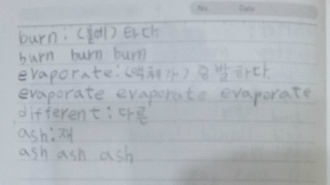 No. Date
burn : (불에) 타다
burn burn burn
evaporate : (액체가) 증발하다.
evaporate evaporate evaporate
different : 다른
ash : 재
ash ash ash